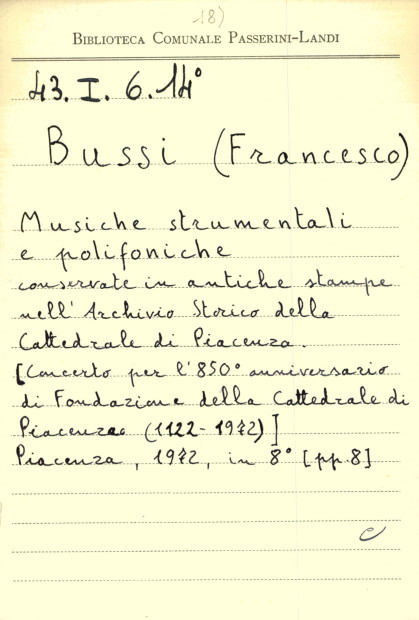 18)
BIBLIOTECA COMUNALE PASSERINI-LANDI
43. I. 6. 14°
Bussi (Francesco)
Musiche strumentali
e polifoniche
conservate in antiche stampe
nell'Archivio Storico della
Cattedrale di Piacenza.
[Concerto per l'850° anniversario
di Fondazione della Cattedrale di
Piacenza (1122-1972)]
Piacenza, 1972, in 8° [pp. 8]
e